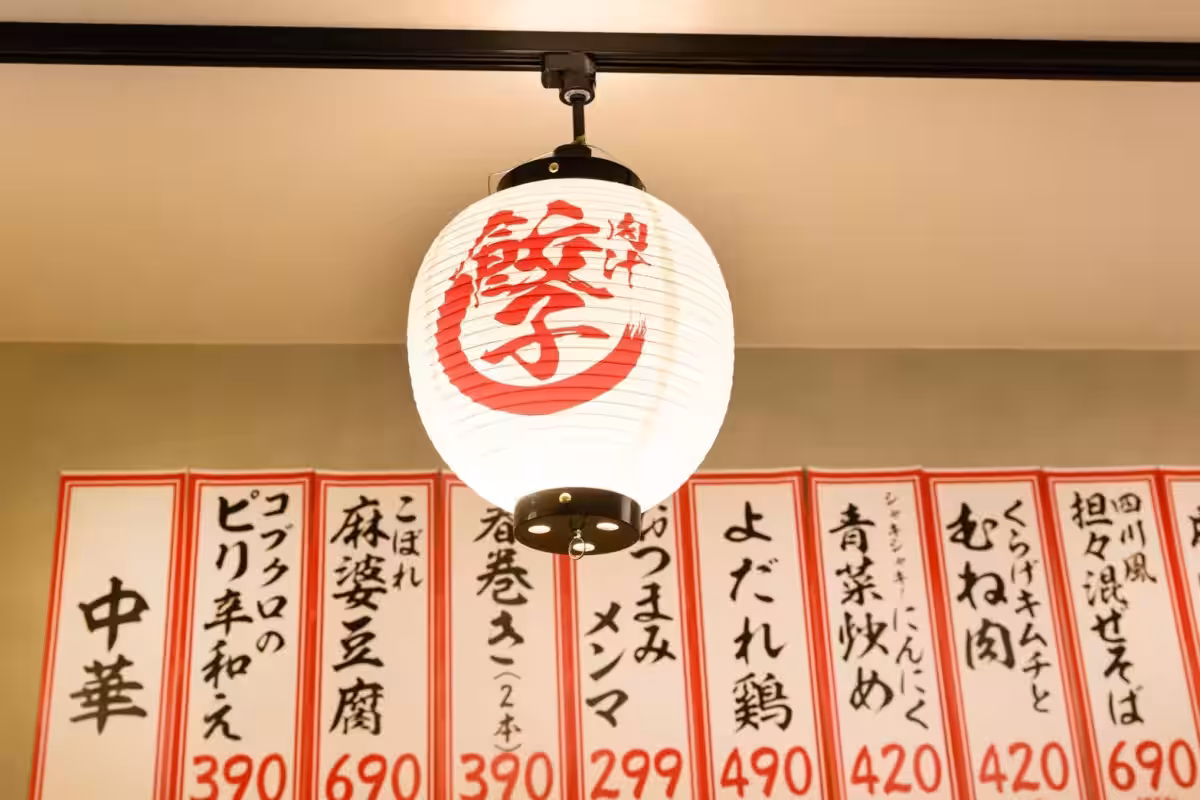 肉汁
餃子
中華
コブクロの
ピリ辛和え
390
こぼれ
麻婆豆腐
690
春巻き(2本)
390
おつまみ
メンマ
299
よだれ鶏
490
シャキシャキ!にんにく
青菜炒め
420
くらげキムチと
むね肉
420
四川風
担々混ぜそば
690